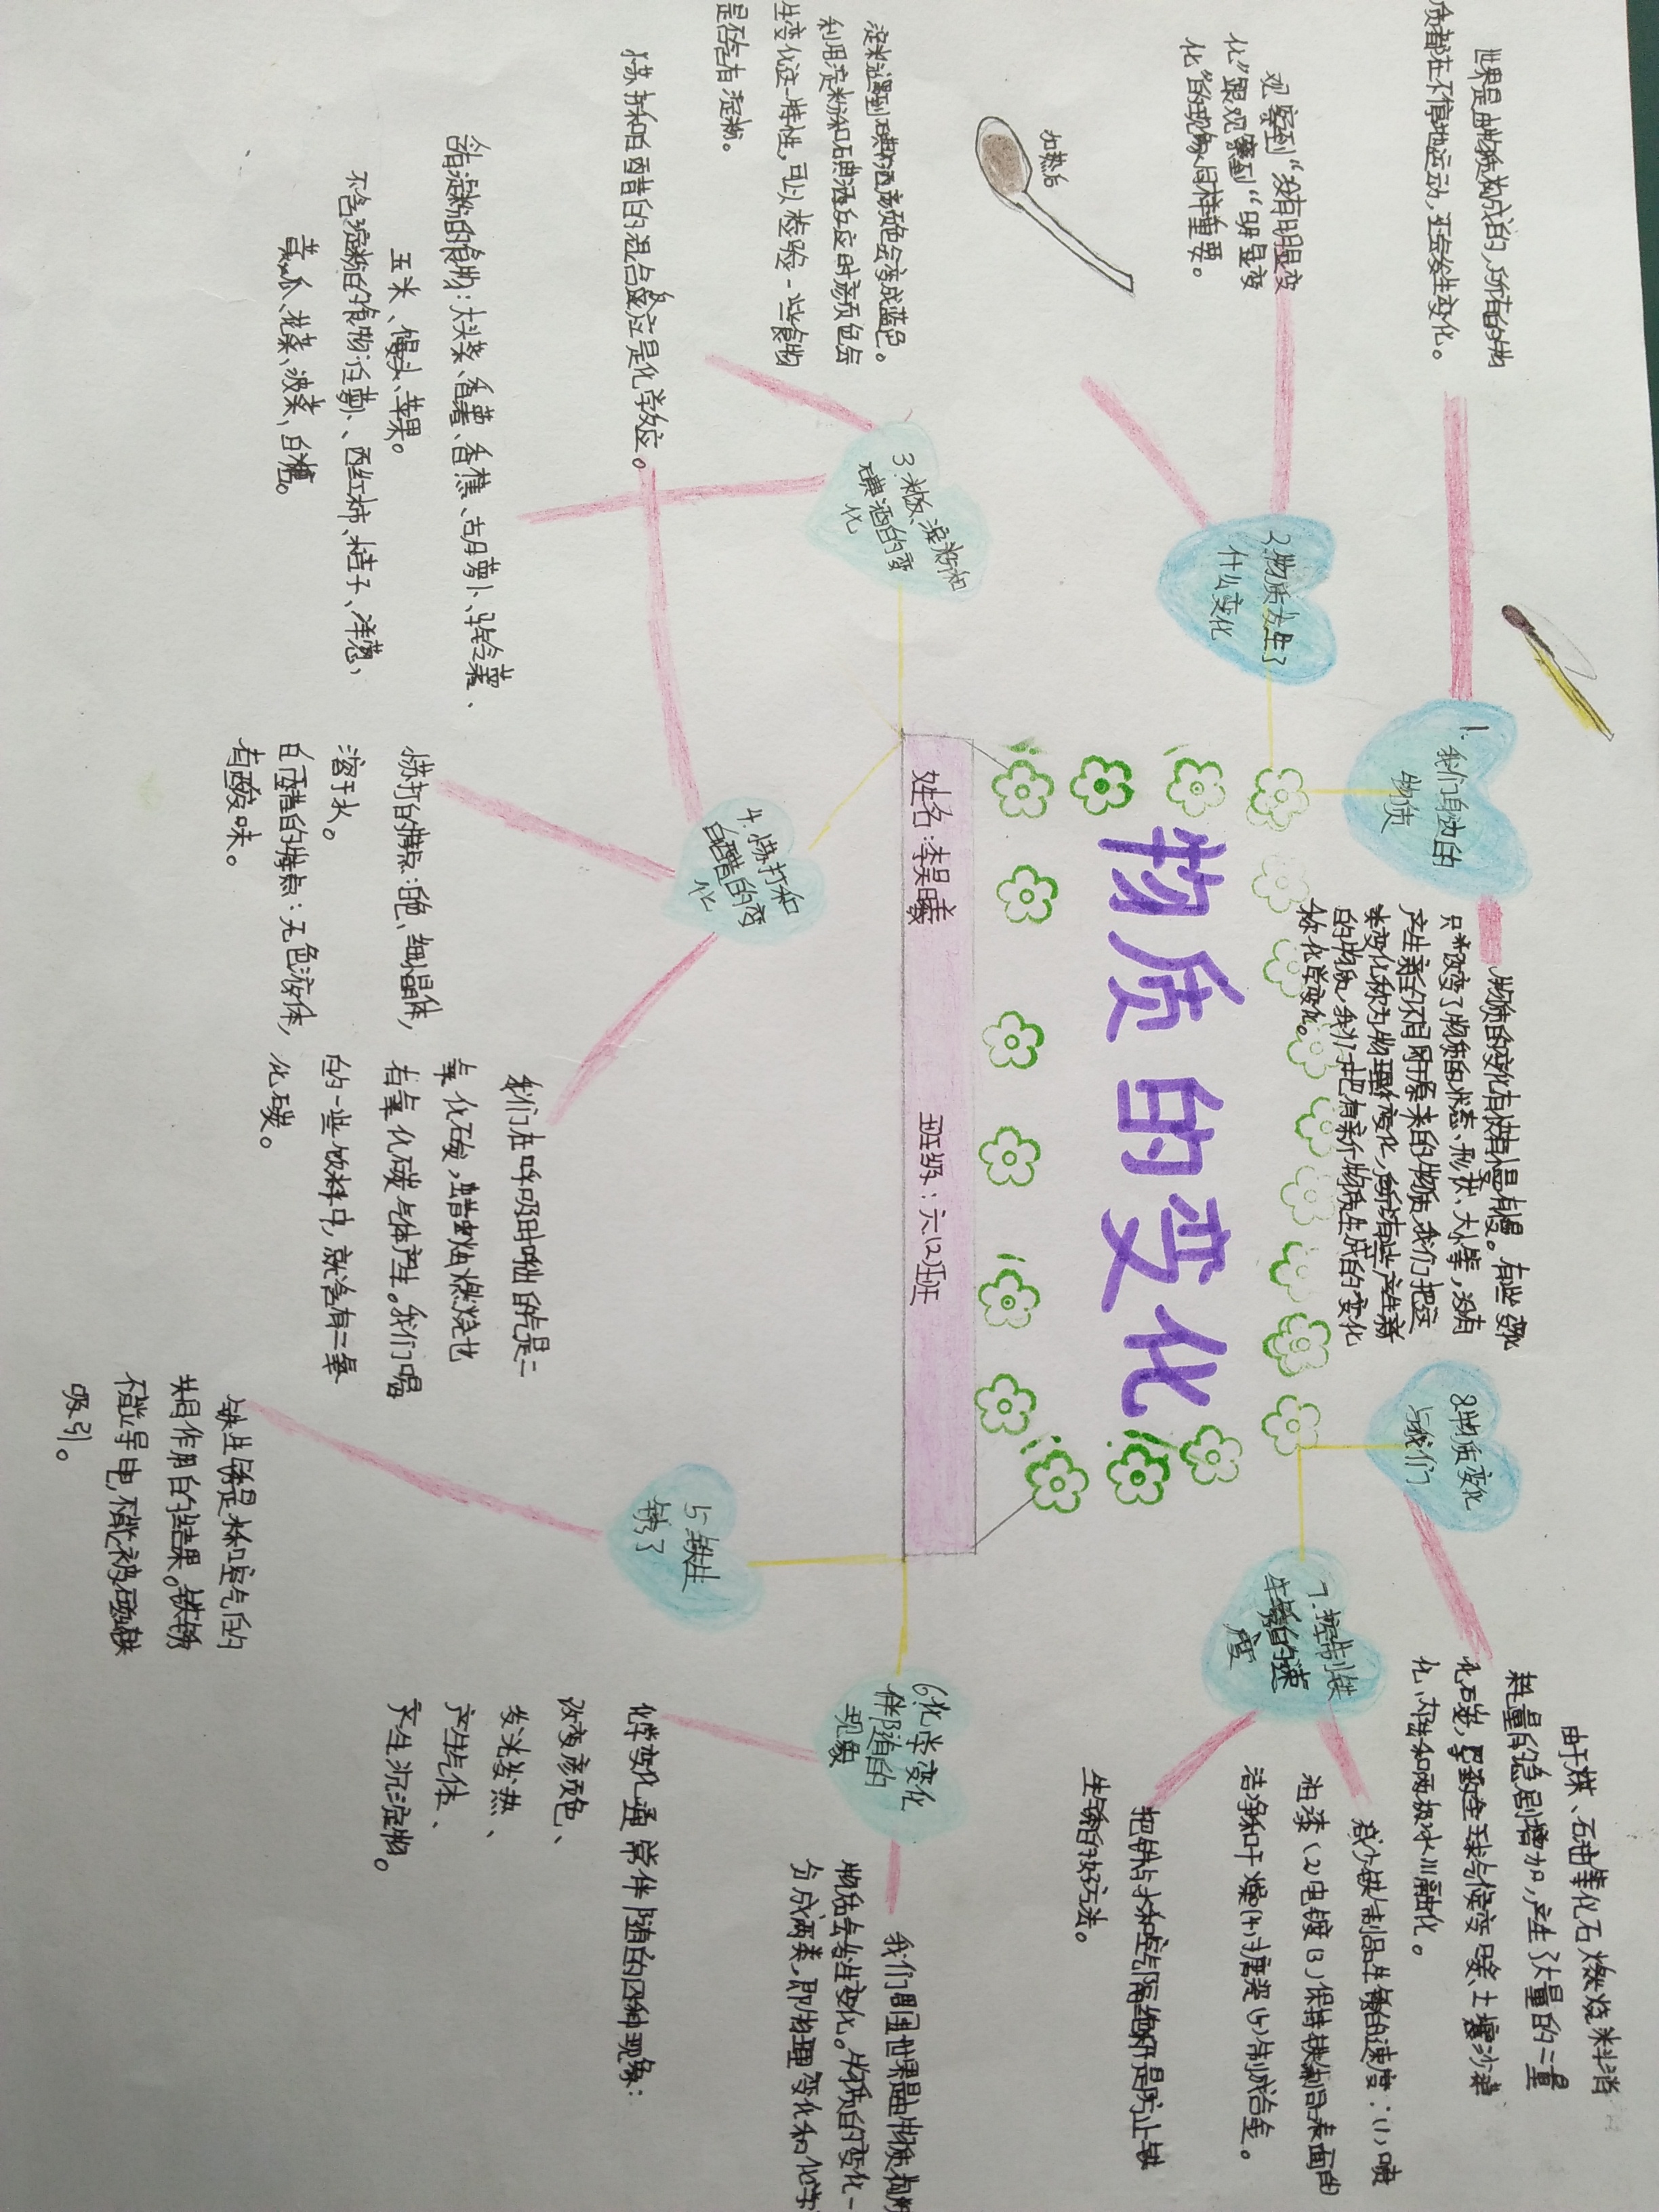 物质的变化
姓名:李昊曦
班级:六(2)班
1.我们身边的
物质
世界是由物质构成的,所有的物
质都在不停地运动,还会发生变化。
物质的变化有快有慢。有些变化
只改变了物质的状态、形状、大小等,没有
产生新的不同于原来的物质,我们把这
类变化称为物理变化,
的物质,我们把有新的物质生成的变化
称化学变化。
2.物质发生了
什么变化
观察到“没有明显变
化”跟观察到“明显变
化”的现象同样重要。
加热后
3.米饭、淀粉和
碘酒的变
化
淀粉遇到碘酒颜色会变成蓝色。
利用淀粉和碘酒反应时颜色会
生变化这一特性,可以检验一些食物
是否含有淀粉。
含有淀粉的食物:大头菜、番薯、香蕉、胡萝卜、马铃薯、
玉米、馒头、苹果。
不含淀粉的食物:红萝卜、西红柿、桔子、洋葱,
黄瓜、花菜、菠菜、白糖。
4.小苏打和
白醋的变
化
小苏打和白醋的混合反应是化学反应。
小苏打的特点:白色、细晶体,
溶于水。
白醋的特点:无色液体,
有酸味。
我们在呼吸时呼出的气是二
氧化碳,蜡烛燃烧也
有二氧化碳气体产生。我们喝
的一些饮料中,就含有二氧
化碳。
5.铁生
锈了
铁生锈是水和空气的
共同作用的结果。铁锈
不能导电,不能被磁铁
吸引。
6.化学变化
伴随的
现象
化学变化通常伴随的四种现象:
改变颜色、
发光发热、
产生气体、
产生沉淀物。
我们周围世界是由物质构成
物质会发生变化。物质的变化一
分成两类,即物理变化和化学
7.控制铁
生锈的速
度
减少铁制品生锈的速度:(1)喷
油漆(2)电镀(3)保持铁制品表面的
洁净和干燥(4)涂唐瓷(5)制成合金。
把铁与水和空气隔绝开是防止铁
生锈的好方法。
8.物质变化
与我们
由于煤、石油等化石燃烧料消
耗量的急剧增加,产生了大量的二氧
化碳,导致全球气候变暖、土壤沙漠
化、内陆和两极冰川融化。